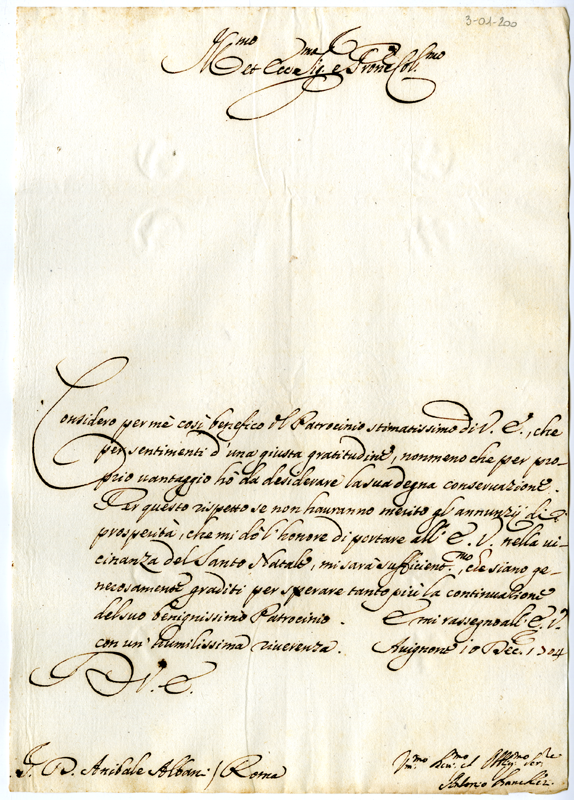 3-01-200
Ill.mo et Ecc.mo Sig.e e Prone Col.mo
Considero per mè così benefico il Patrocinio stimatissimo di V. E., che
per sentimenti d'una giusta gratitudine, nonmeno che per pro-
prio vantaggio hò da desiderare la sua degna conservazione.
Per questo rispetto se non hauranno merito gl'annunzij di
prosperità, che mi dò l'honore di portare all' E. V. nella vi-
cinanza del Santo Natale, mi sarà sufficient.mo, che siano ge-
nerosamente graditi per sperare tanto più la continuazione
del suo benignissimo Patrocinio. E mi rassegno all' E. V.
con un' humilissima riverenza. Avignone 10 Dec.e 1704
D V. E.
D. Anibale Albani / Roma
Antonio